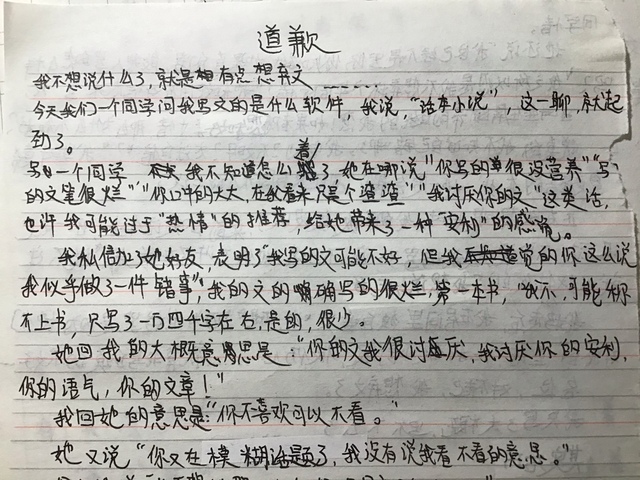 道歉
我不想说什么了，就是想有点想弃文……
今天我们一个同学问我写文的是什么软件，我说，“话本小说”，这一聊，就起
到了。
另一个同学 我不知道怎么着了她在哪说“你写的单很没营养”“写
的文笔很烂”“你口中的大大，在我看来只是个渣渣”“我讨厌你的文”这类话，
也许我可能过于“热情”的推荐，给她带来了一种“安利”的感觉。
我私信加了她好友，表明了“我写的文可能不好，但我觉的你这么说
我似乎做了一件错事”，我的文的确写的很烂，第一本书，哦不，可能称
不上书，只写了一万四千字左右，是的，很少。
她回我的大概意思是：“你的文我很讨厌，我讨厌你的安利，
你的语气，你的文章！”
我回她的意思是“你不喜欢可以不看。”
她又说“你又在模糊话题了，我没有说我看不看的意思。”